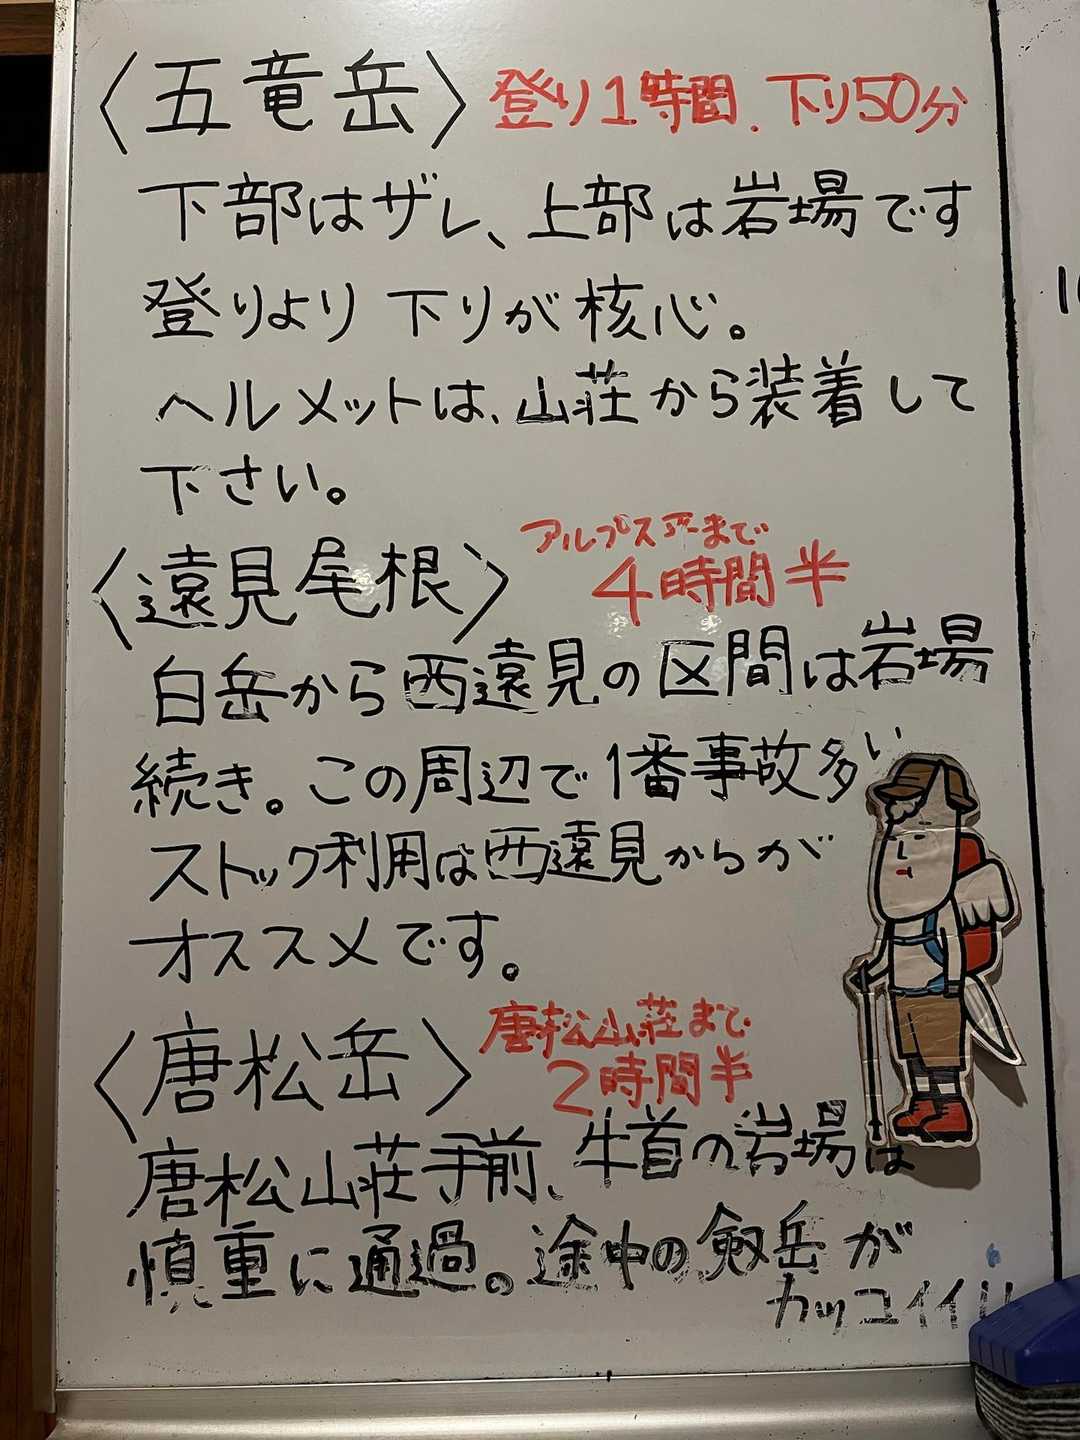 〈五竜岳〉 登り1時間.下り50分
下部はザレ、上部は岩場です
登りより下りが核心。
ヘルメットは、山荘から装着して
下さい。
〈遠見尾根〉 アルプス平まで
4時間半
白岳から西遠見の区間は岩場
続き。この周辺で1番事故多い
ストック利用は西遠見からが
オススメです。
〈唐松岳〉 唐松山荘まで
2時間半
唐松山荘手前、牛首の岩場は
慎重に通過。途中の剱岳が
カッコイイ!!